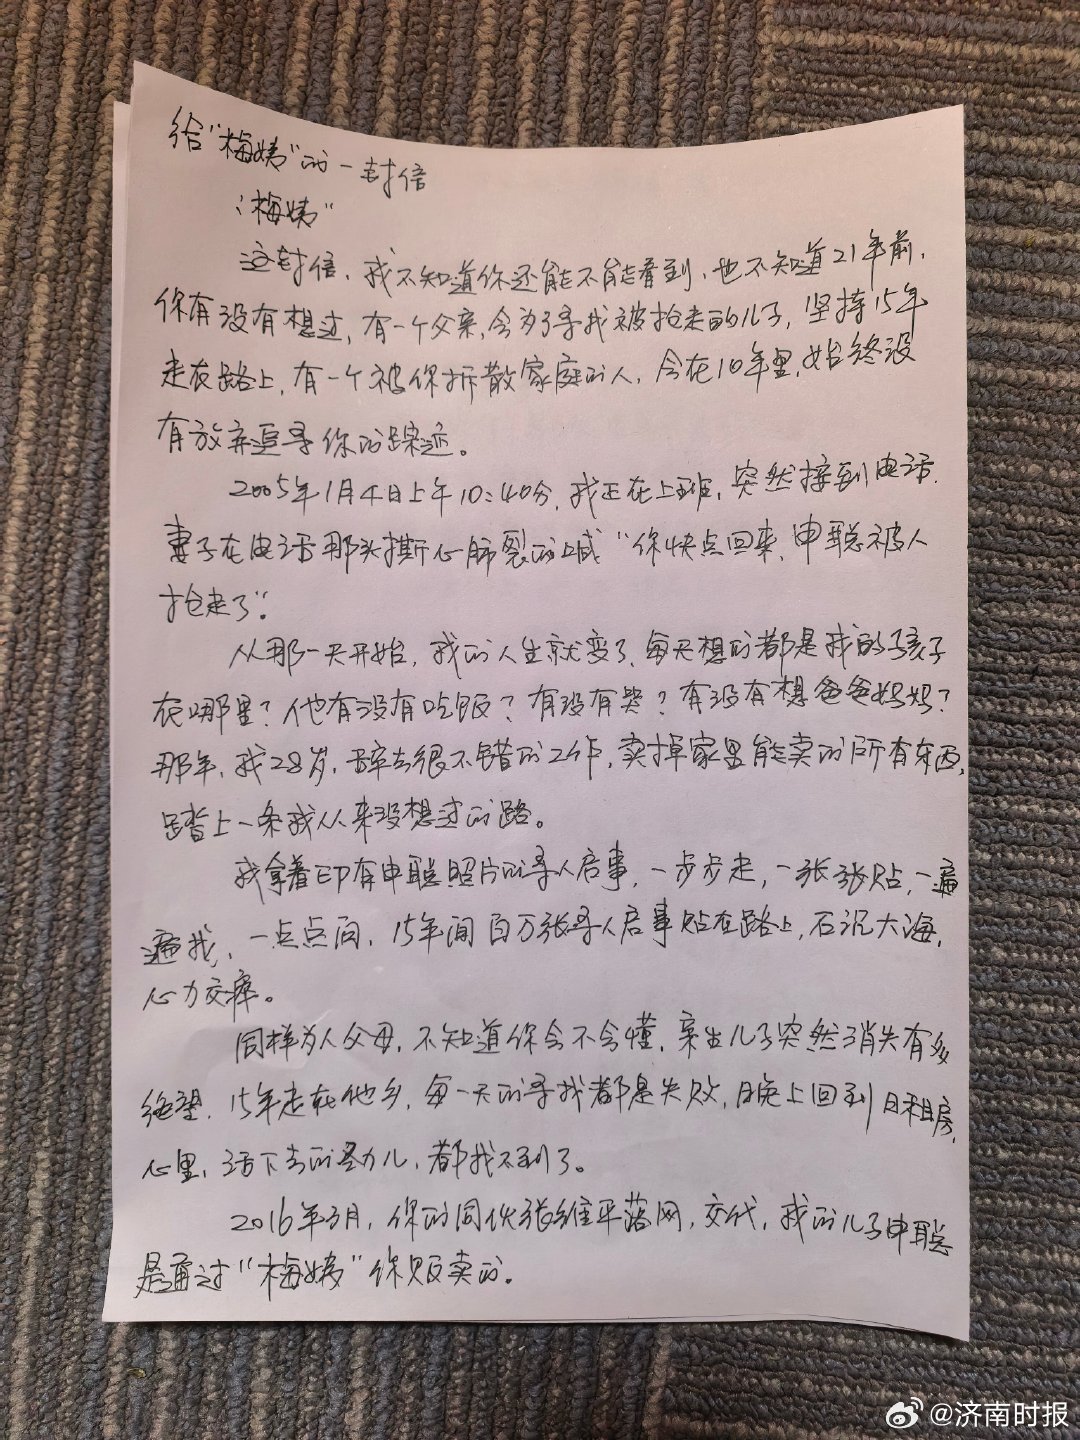 给“梅姨”的一封信
“梅姨”
这封信，我不知道你还能不能看到，也不知道21年前，
你有没有想过，有一个父亲，会为了寻找被抢走的儿子，坚持15年
走在路上，有一个被你拆散家庭的人，会在10年里，始终没
有放弃追寻你的踪迹。
2005年1月4日上午10:40分，我正在上班，突然接到电话，
妻子在电话那头撕心肺裂的喊“你快点回来，申聪被人
抢走了”。
从那一天开始，我的人生就变了，每天想的都是我的孩子
在哪里？他有没有吃饭？有没有哭？有没有想爸爸妈妈？
那年，我28岁，辞去很不错的工作，卖掉家里能卖的所有东西，
踏上一条我从来没想过的路。
我拿着印有申聪照片的寻人启事，一步步走，一张张贴，一遍
遍找，一点点问，15年间百万张寻人启事贴在路上，石沉大海，
心力交瘁。
同样为人父母，不知道你会不会懂，亲生儿子突然消失有多
绝望，15年走在他乡，每一天的寻找都是失败，晚上回到日租房，
心里，活下去的劲儿，都找不到了。
2016年3月，你的同伙张维平落网，交代，我的儿子申聪
是通过“梅姨”你贩卖的。
@济南时报